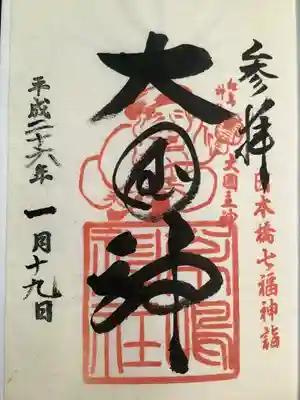 参拝
日本橋七福神詣
大國主神
大国神
松島神社
平成二十六年
一月十九日